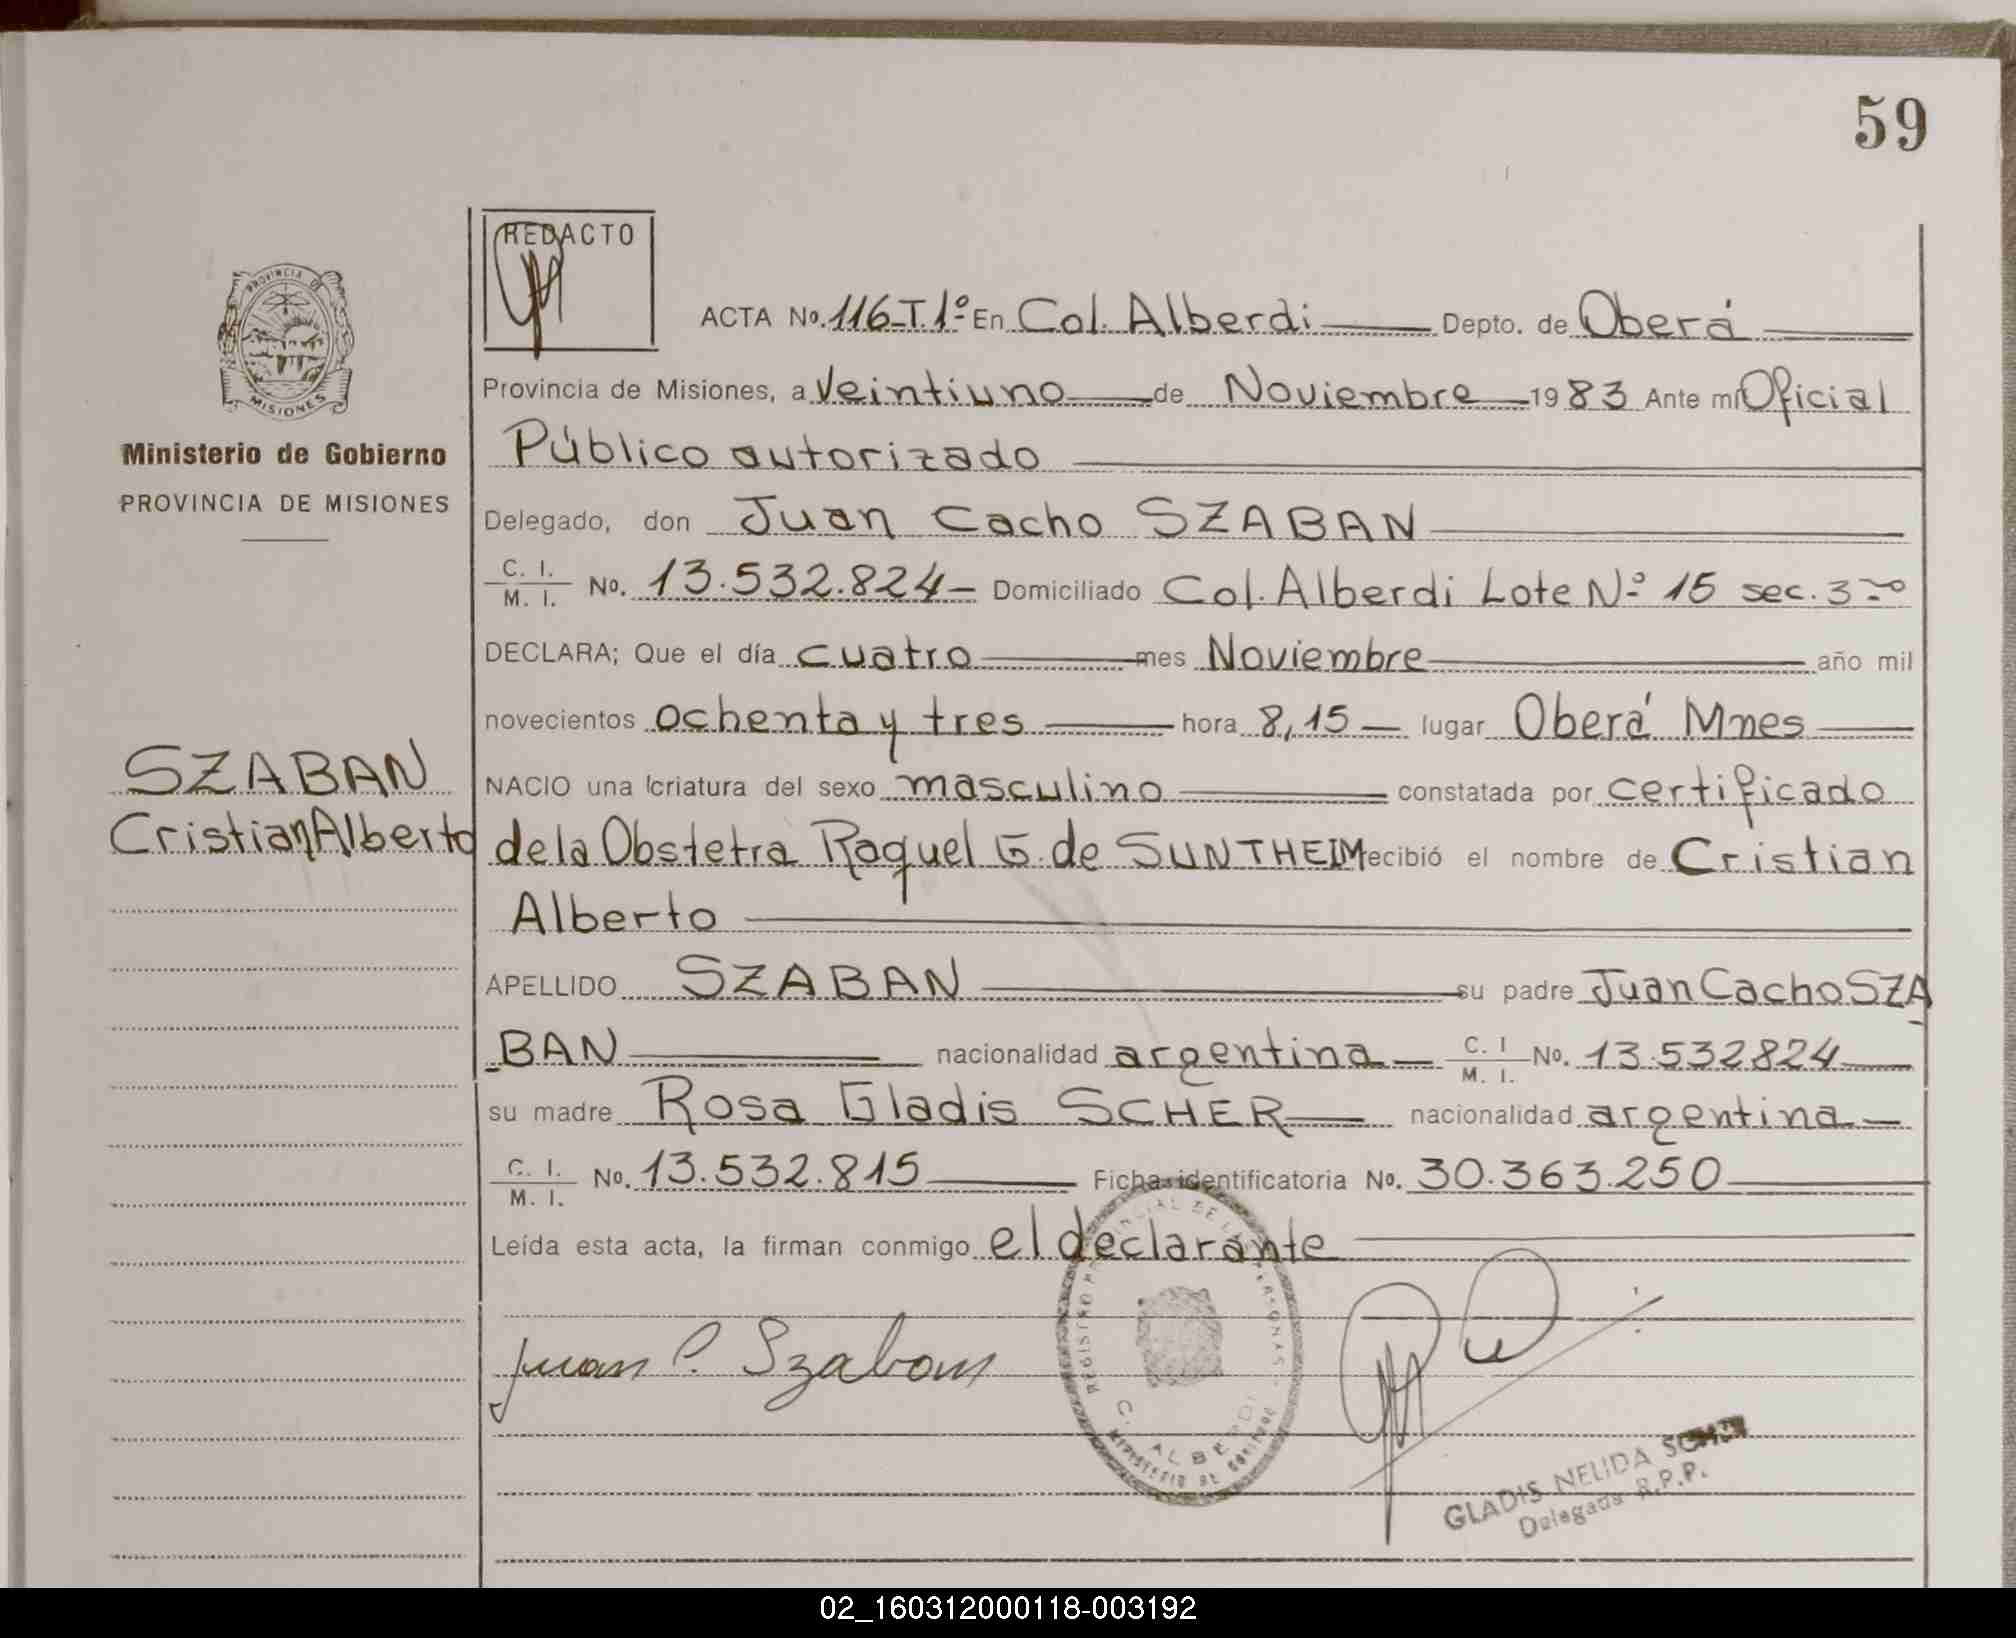 59
REDACTO
PROVINCIA DE
MISIONES
Ministerio de Gobierno
PROVINCIA DE MISIONES
SZABAN
Cristian Alberto
ACTA No. 116-T.1º En Col. Alberdi Depto. de Oberá
Provincia de Misiones, a Veintiuno de Noviembre 1983 Ante mí Oficial
Público autorizado
Delegado, don Juan Cacho SZABAN
C. I. / M. I. No. 13.532.824- Domiciliado Col. Alberdi Lote Nº 15 sec. 3
DECLARA; Que el día cuatro mes Noviembre año mil
novecientos ochenta y tres hora 8,15 lugar Oberá Mnes
NACIO una criatura del sexo masculino constatada por certificado
de la Obstetra Raquel G. de SUNTHEIM ecibió el nombre de Cristian
Alberto
APELLIDO SZABAN su padre Juan Cacho SZA
BAN nacionalidad argentina C. I / M. I. No. 13.532824
su madre Rosa Gladis SCHER nacionalidad argentina
C. I. / M. I. No. 13.532.815 Ficha identificatoria No. 30.363.250
Leída esta acta, la firman conmigo el declarante
Juan C. Szaban
C. ALBERDI
GLADIS NELIDA
Delegada R.P.P.
02_160312000118-003192